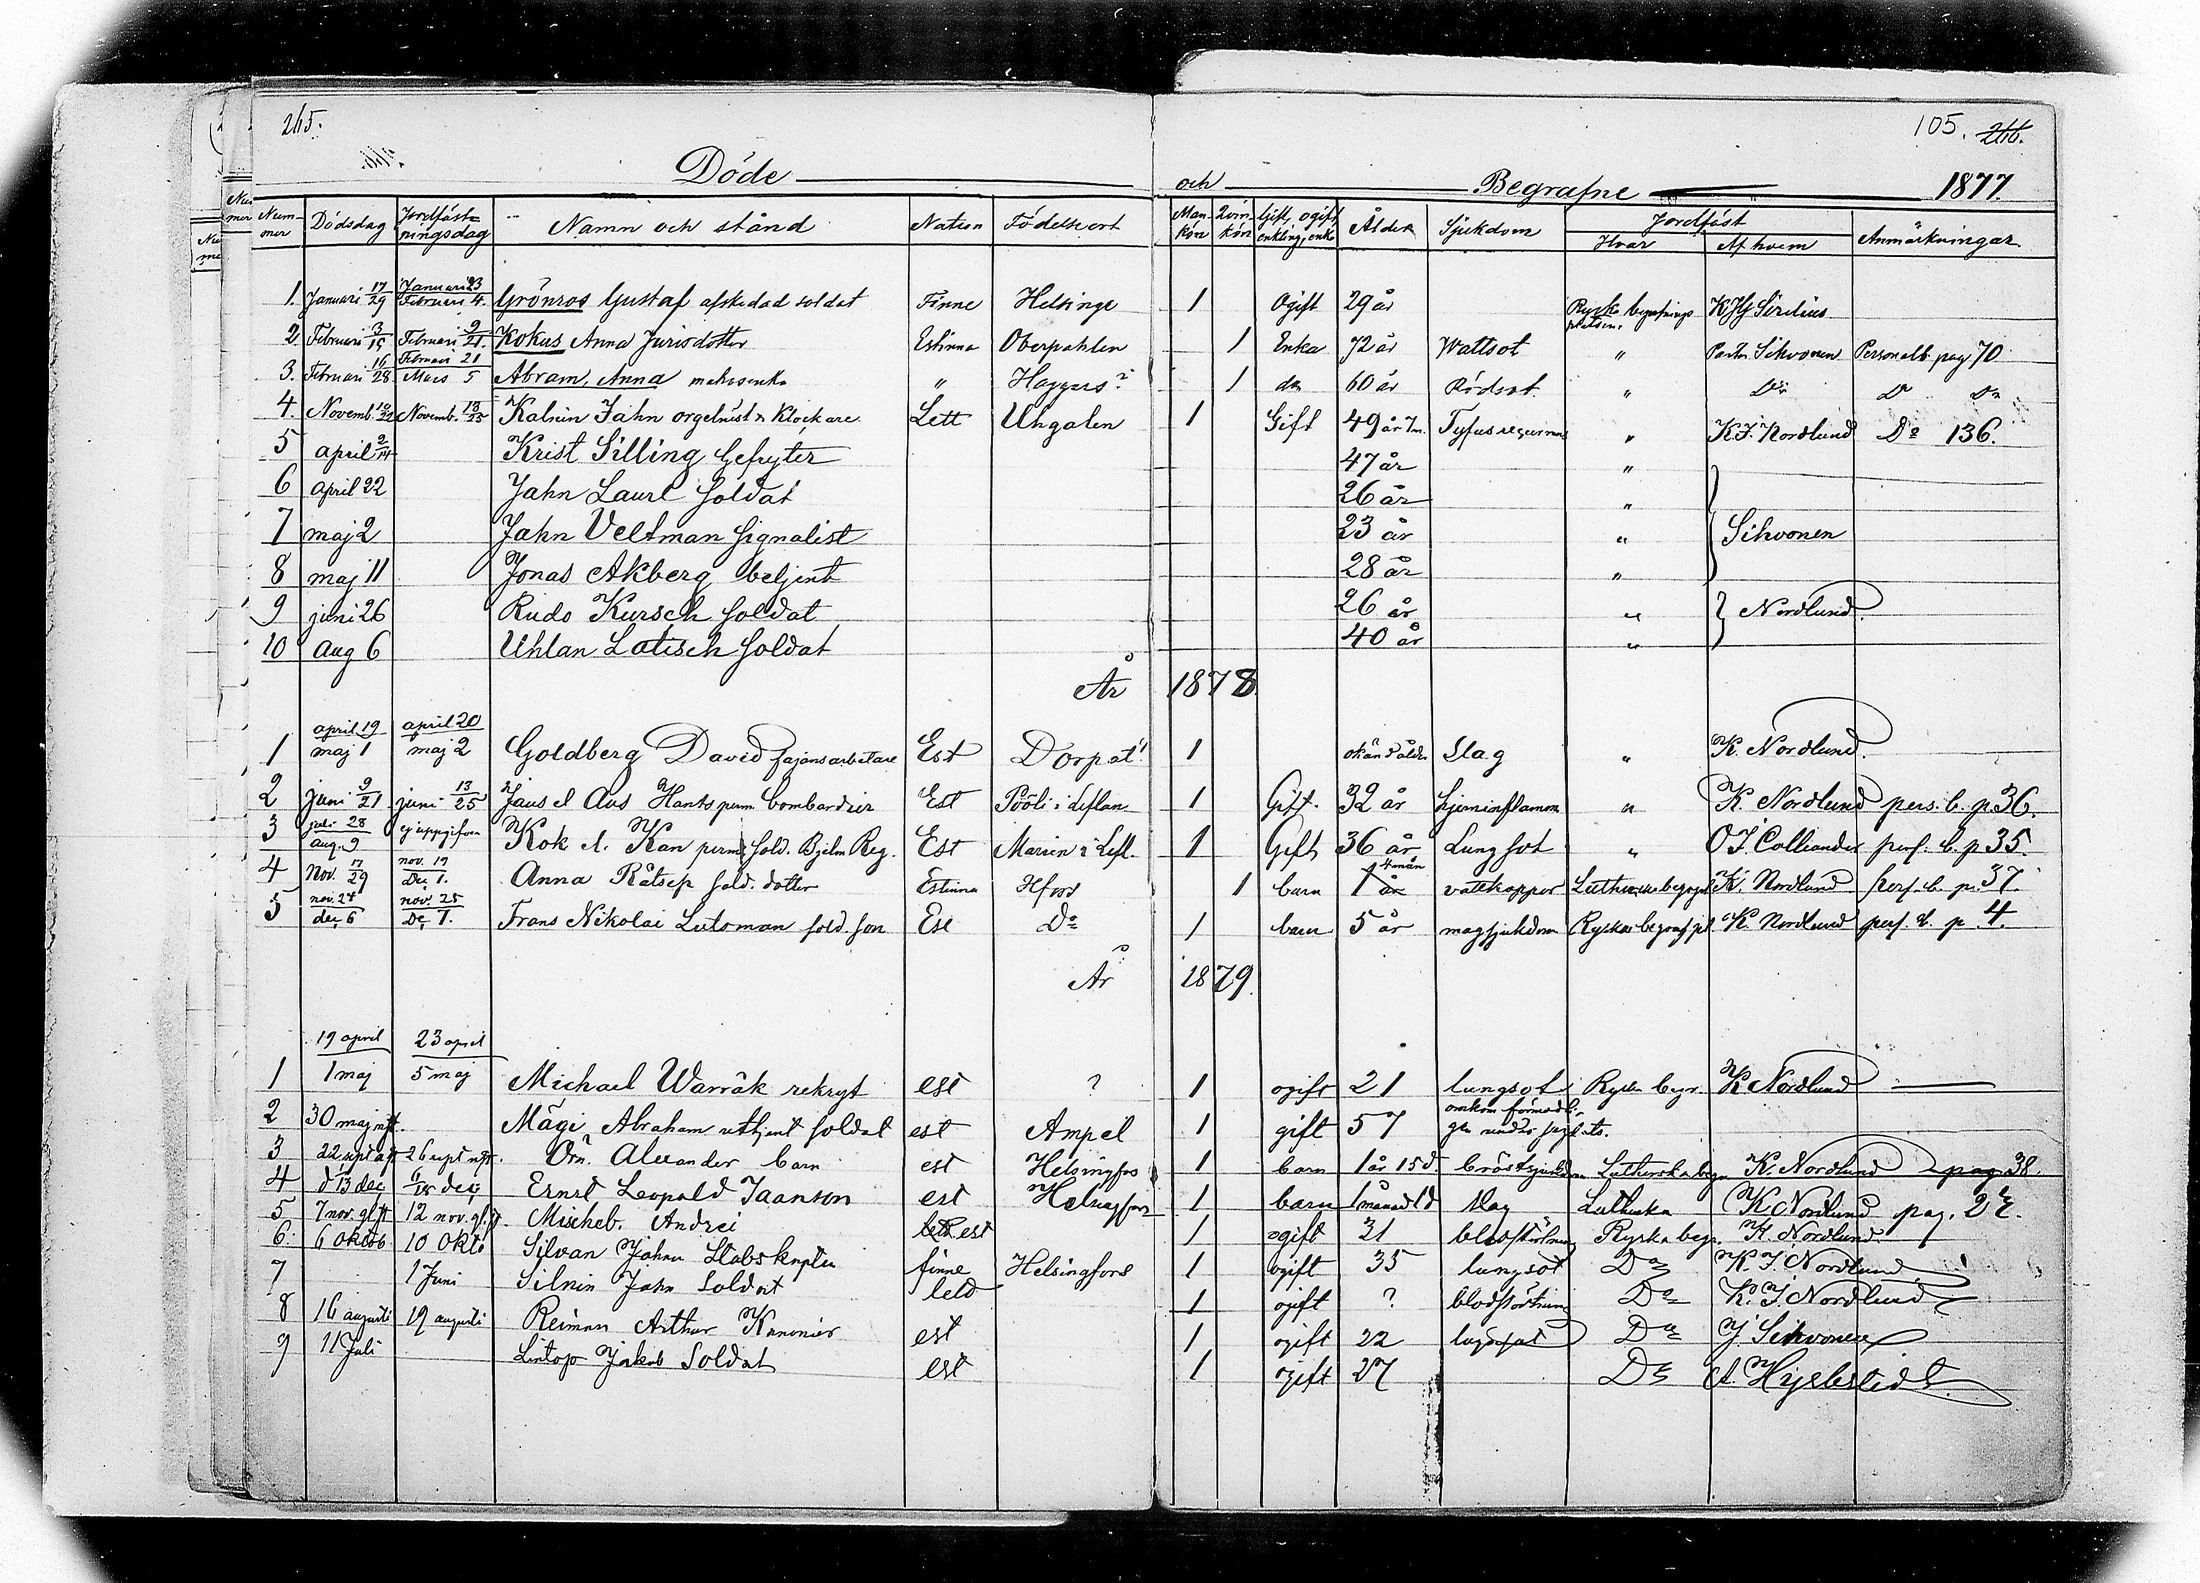 265.
105. 266.
Döde och Begrafne 1877.
Nummer Dödsdag Jordfästningsdag Namn och stånd Nation Födelseort Mankön Qvinkön Gift, ogift, enkling, enka Ålder Sjukdom Jordfäst Hvar Af hvem Anmärkningar
1. Januari 17/29 Januari 23 Februari 4. Grönros Gustaf afskedad soldat Finne Helsinge 1 Ogift 29 år Ryska begrafningsplatsen. K Hj Sirelius
2. Februari 3/15 Februari 9/21 Kokus Anna Jurisdotter Estinna Oberpahlen 1 Enka 72 år Wattsot " Pastor Sihvonen Personalb. pag 70
3. Februari 16/28 Februari 21 Mars 5 Abram, Anna " Haggers? 1 do 60 år Rödsot " Do Do Do
4. Novemb. 10/22 Novemb. 13/25 Kalnin Jahn orgelnist & Klockare Lett Uhgalen 1 Gift 49 år 7 m. Tyfus recurrens " K.J. Nordlund Do 136.
5 april 2/14 Krist Silling Gefreyter 47 år "
6 april 22 Jahn Laurl soldat 26 år "
7 maj 2 Jahn Veltman signalist 23 år " Sihvonen
8 maj 11 Jonas Akberg betjent 28 år "
9 juni 26 Rudo Kursch soldat 26 år " Nordlund
10 aug 6 Uhlan Latisch soldat 40 år "
År 1878.
1 april 19 maj 1 april 20 maj 2 Goldberg David fajansarbetare Est Dorpat 1 okänd ålder Slag " K. Nordlund.
2 juni 9/21 juni 13/25 Jaus el Aus Hants perm. bombardier Est Pööli i Lifland 1 Gift. 32 år hjerninflamm " K. Nordlund pers. b. p 36.
3 juli 28 aug. 9 ej uppgifven Kok el. Kan perm. sold. Bjelm Reg. Est Marien i Lifl. 1 Gift 36 år Lungsot " O.I. Colliander pers. b. p 35.
4 Nov. 17/29 nov. 19 Dec 1. Anna Rätsep sold. dotter Estinna Hfors 1 barn 1 år 4 mån vattkoppor Lutherska begr.pl K. Nordlund pers. b. p. 37.
5 nov. 24 dec 6 nov. 25 Dec 7. Frans Nikolai Lutoman sold. son Est Do 1 barn 5 år magsjukdom Ryska begraf.pl K. Nordlund pers. b. p 4.
År 1879.
1 19 april 1 maj 23 april 5 maj Michael Warräk rekryt est ? 1 ogift 21 lungsot Ryska begr. K Nordlund
2 30 maj n.st. Mägi Abraham uttjent soldat est Ampel 1 gift 57 omkom förmodligen under
3 22 sept 26 sept n.st. Orn. Alexander barn est Helsingfors 1 barn 1 år 15 d. bröstsjukdom Lutherska begr. K. Nordlund pag 38.
4 d 13 dec dec Ernst Leopold Jaanson est Helsingfors 1 barn 1 månad 1 d slag Lutherska K Nordlund pag. 22.
5 7 nov. gl.st 12 nov. gl.st. Mischeb. Andrei est 1 ogift 21 blodstörtning Ryska begr. K. Nordlund
6. 6 Oktob 10 Okto Silvan Johan Stabskapten finne Helsingfors 1 ogift 35 lungsot Do K. J. Nordlund
7 1 Juni Silnin Jahn Soldat 1 ogift ? blodstörtning Do K. J. Nordlund
8 16 augusti 19 augusti Reiman Arthur Kanonier est 1 ogift 22 lungsot Do J Sihvonen
9 11 Juli Lintop Jakob Soldat est 1 ogift 27 Do A. Hjelmstedt